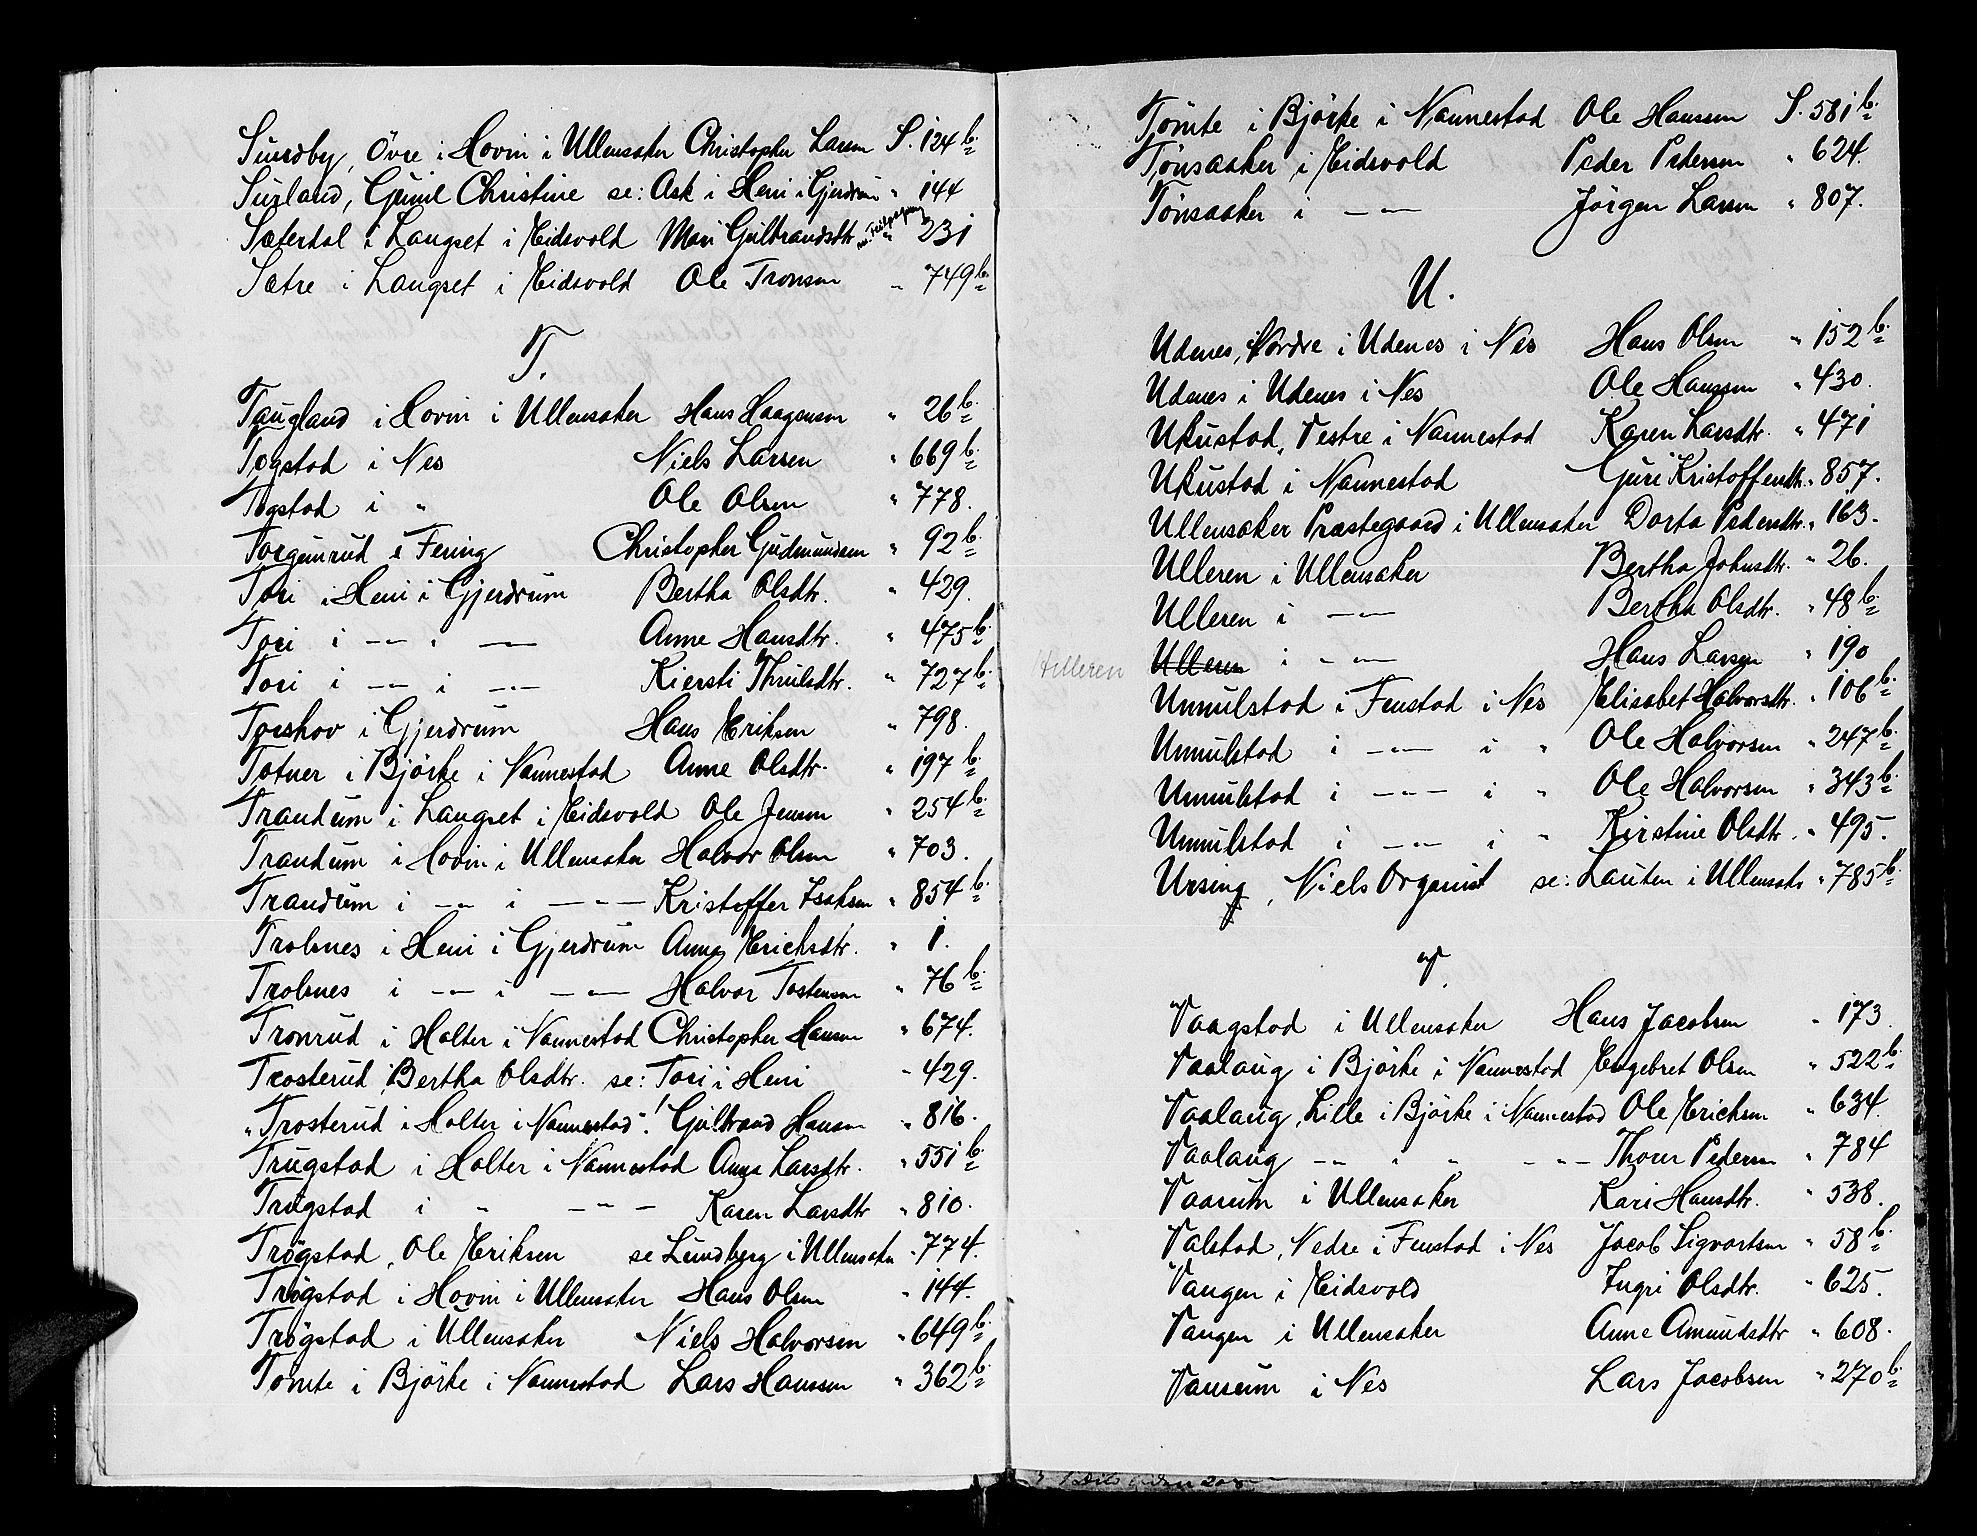 Sundby, Övre i Hovin i Ullensaker Christopher Larsen S. 124 b.
Surland, Gunil Christine se: Ask i Heni i Gjerdrum " 144
Sæterdal i Langset i Eidsvold Mari Gulbrandsdtr. " 231
Sætre i Langset i Eidsvold Ole Tronsen " 749 b.
T.
Taugland i Hovin i Ullensaker Hans Haagensen " 26 b.
Togstad i Nes Niels Larsen " 669 b.
Togstad i " Ole Olsen " 778.
Torgunrud i Fering Christopher Gudmundsen " 92 b.
Tori i Heni i Gjerdrum Bertha Olsdtr. " 429.
Tori i -"- i -"- Anne Hansdtr. " 475 b.
Tori i -"- i -"- Kiersti Thrulsdtr. " 727 b.
Torshov i Gjerdrum Hans Eriksen " 798.
Totner i Björke i Nannestad Anne Olsdtr. " 197 b.
Trandum i Langset i Eidsvold Ole Jensen " 254 b.
Trandum i Hovin i Ullensaker Halvor Olsen " 703.
Trandum i -"- i -"- Kristoffer Isaksen " 854 b.
Trolsnes i Heni i Gjerdrum Anne Erichsdtr. " 1.
Trolsnes i -"- i -"- Halvor Tostensen " 76 b.
Tronrud i Holter i Nannestad Christopher Hansen " 674.
Trosterud, Bertha Olsdtr. se: Tori i Heni " 429.
"Trosterud i Holter i Nannestad"! Gulbrand Hansen " 816.
Trugstad i Holter i Nannestad Anne Larsdtr. " 551 b.
Trugstad i " -"- Karen Larsdtr " 810.
Trögstad, Ole Eriksen se Lundberg i Ullensaker " 774.
Trögstad i Hovin i Ullensaker Hans Olsen " 144.
Trögstad i Ullensaker Niels Halvorsen " 649 b.
Tömte i Björke i Nannestad Lars Hanssen " 362 b.
Tömte i Björke i Nannestad Ole Hanssen S. 581 b.
Tönsaaker i Eidsvold Peder Pedersen " 624.
Tönsaaker i -"- Jörgen Larsen " 807.
U.
Udenes, Nordre i Udenes i Nes Hans Olsen " 152 b.
Udenes i Udenes i Nes Ole Hanssen " 430.
Ukustad, Vestre i Nannestad Karen Larsdtr. " 471
Ukustad i Nannestad Guri Kristoffersdtr. " 857.
Ullensaker Præstegaard i Ullensaker Dorta Pedersdtr. " 163.
Ulleren i Ullensaker Bertha Johnsdtr. " 26.
Ulleren i -"- Bertha Olsdtr. " 48 b.
Hilleren Ulleren i -"- Hans Larsen " 190
Unnulstad i Fenstad i Nes Elisabet Halvorsdtr. " 106 b.
Unnulstad i -"- i " Ole Halvorsen " 247 b.
Unnulstad i -"- i " Ole Halvorsen " 343 b.
Unnulstad i -"- i " Kirstine Olsdtr. " 495.
Ursing, Niels Organist se: Lauten i Ullensaker " 785 b.
V.
Vaagstad i Ullensaker Hans Jacobsen " 173
Vaalaug i Björke i Nannestad Engebret Olsen " 522 b.
Vaalaug, Lille i Björke i Nannestad Ole Erichsen " 634.
Vaalaug -"- " " -"- Thorer Pedersen " 784
Vaarum i Ullensaker Kari Hansdtr. " 538.
Valstad, Nedre i Fenstad i Nes Jacob Sigvartsen " 58 b.
Vangen i Eidsvold Ingri Olsdtr. " 625.
Vangen i Ullensaker Anne Amundsdtr " 608.
Vanrum i Nes Lars Jacobsen " 270 b.